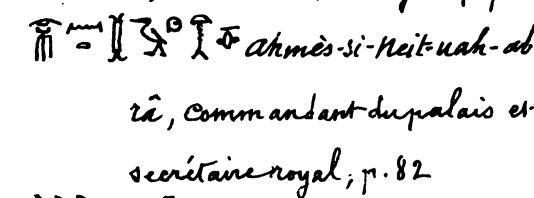 Ahmès-si-Neit-uah-ab
râ, Commandant du palais et
secrétaire royal; p. 82